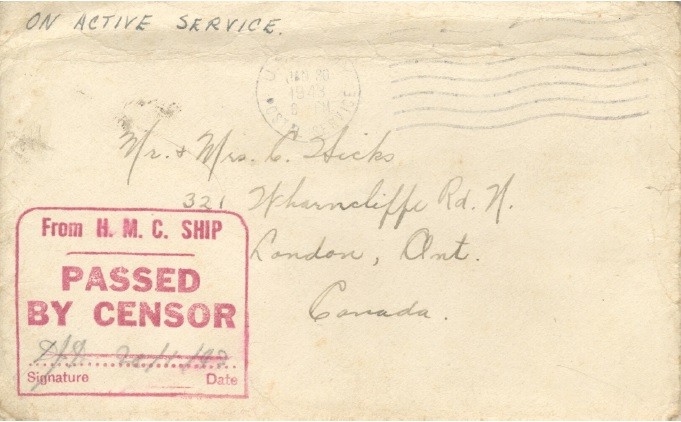 ON ACTIVE SERVICE.
1943
POSTAL SERVICE
Mr. & Mrs. C. Hicks
321 Wharncliffe Rd. N.
London, Ont.
Canada.
From H. M. C. SHIP
PASSED
BY CENSOR
Signature Date